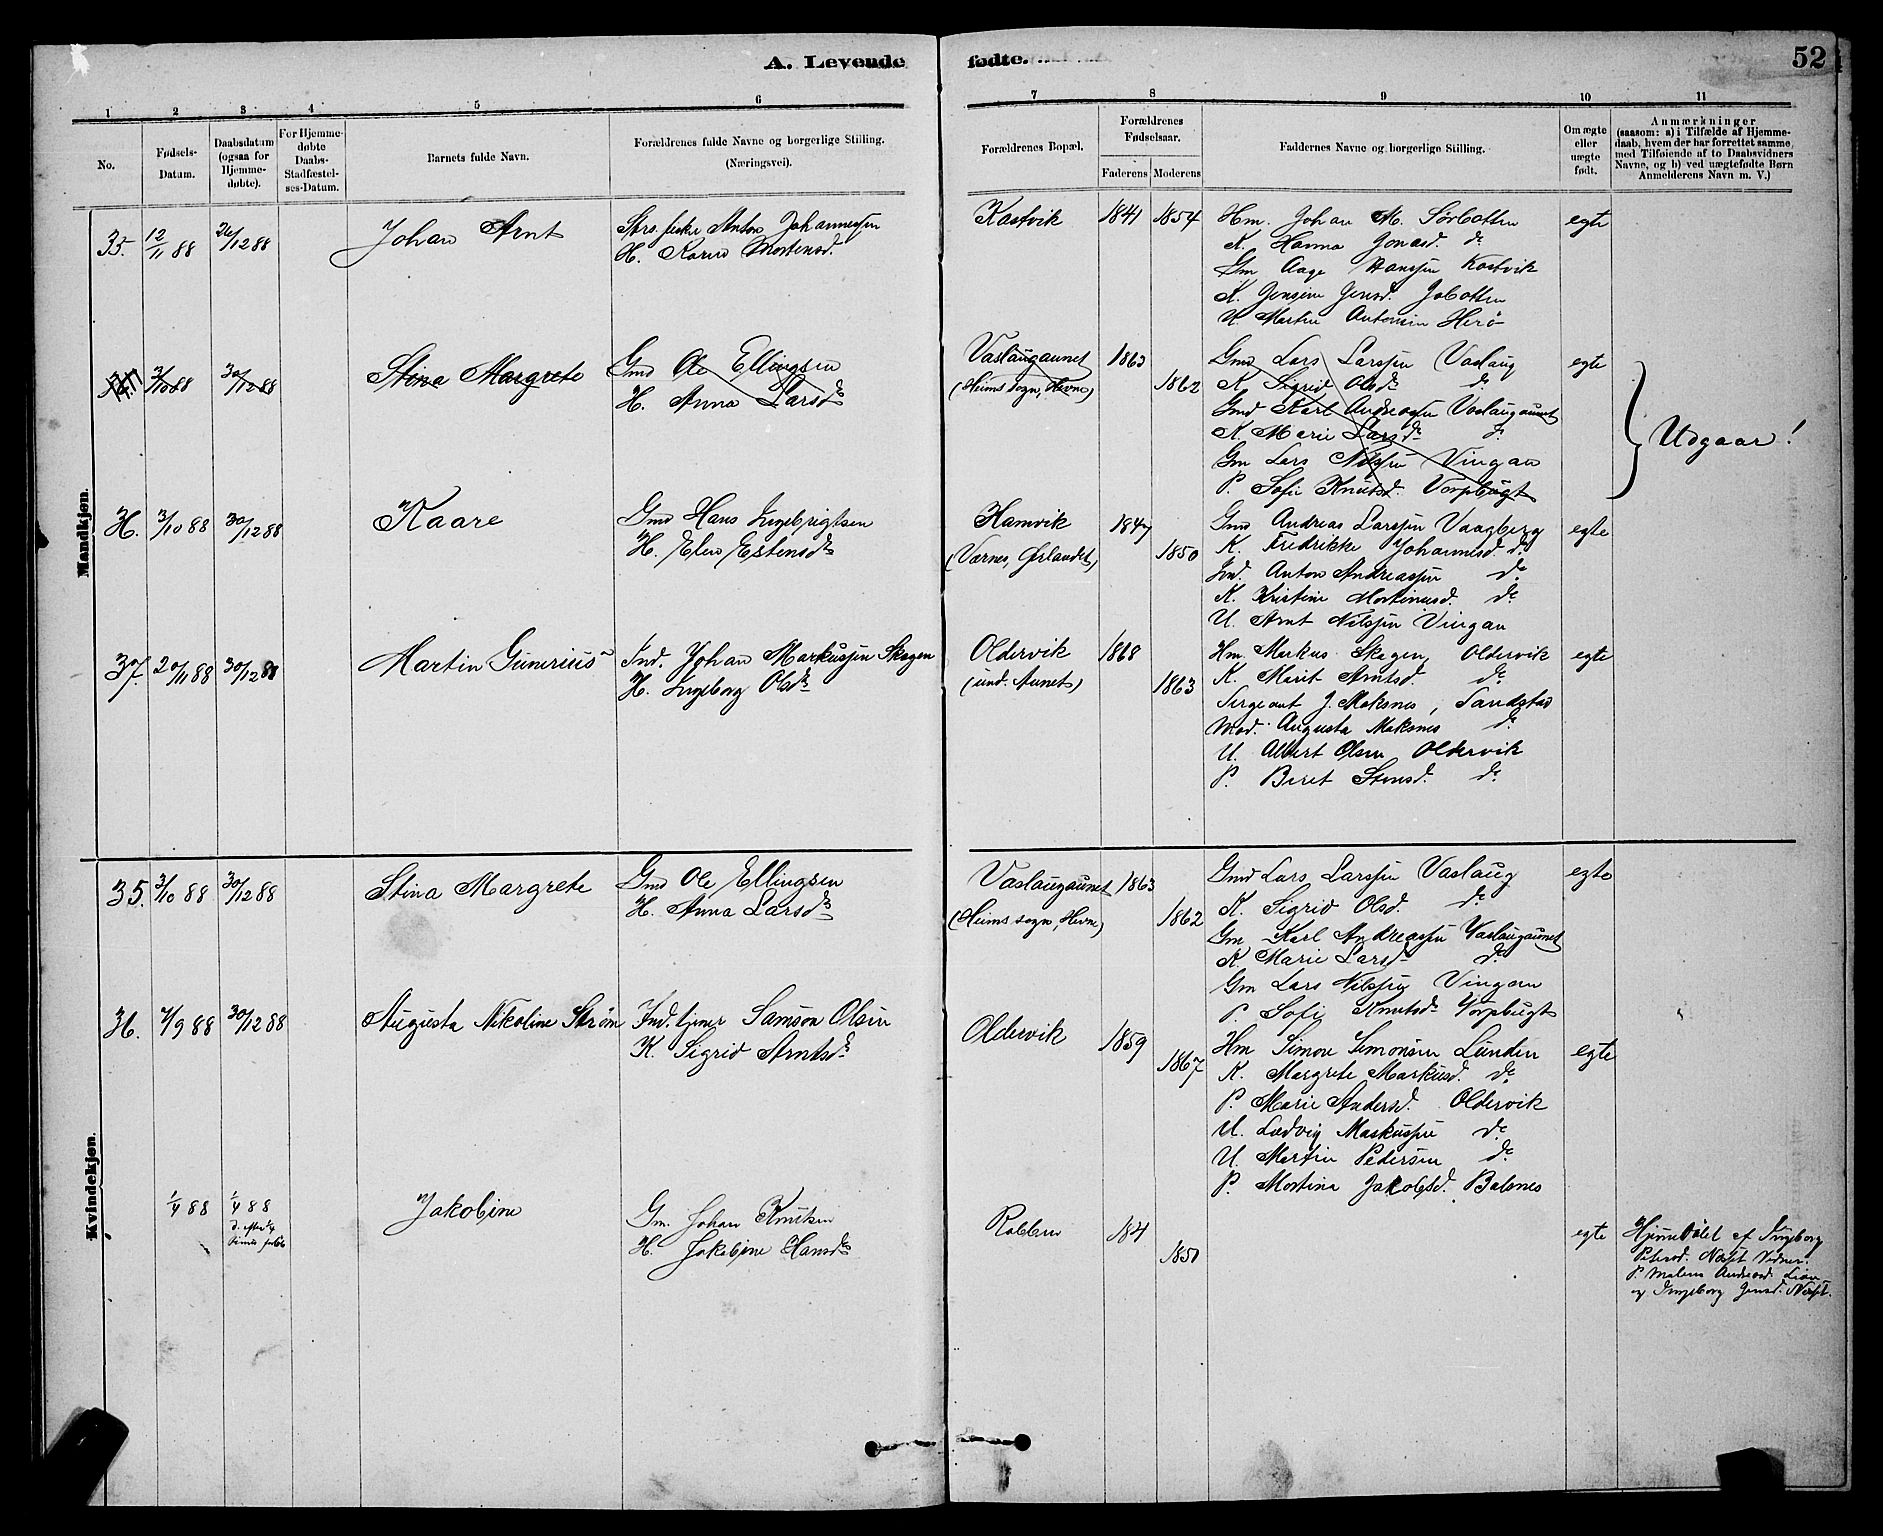 A. Levende fødte.
52
1 2 3 4 5 6 7 8 9 10 11
No.
Fødsels-Datum.
Daabsdatum (ogsaa for Hjemme-døbte).
For Hjemme-døbte Daabs-Stadfæstel-ses-Datum.
Barnets fulde Navn.
Forældrenes fulde Navne og borgerlige Stilling. (Næringsvei).
Forældrenes Bopæl.
Forældrenes Fødselsaar.
Faderens Moderens
Faddernes Navne og borgerlige Stilling.
Om ægte eller uægte født.
Anmærkninger
(saasom: a) i Tilfælde af Hjemme-
daab, hvem der har forrettet samme,
med Tilføiende af to Daabsvidners
Navne, og b) ved uægtefødte Børn
Anmelderens Navn m. V.)
Mandkjøn.
35. 12/11 88 26/12 88 Johan Arnt
Anton Johannessen
H. Karen Mortensd.
Kastvik 1841 1854
Hm. Johan M. Sørbotten egte
K. Hanna Jonasd. do
Gm Aage Hanssen Kastvik
K. Jensine Jensd.
U. Martin Antonsen Herø
3/10 88 30/12 88 Stina Margrete
Gmd Ole Ellingsen
H. Anna Larsdr
Vaslaugaunet 1863
(Heims sogn, Hevne) 1862
Gmd Lars Larssen Vaslaug egte
K. Sigrid Olsdr do
Gmd Karl Andreassen Vaslaugaunet
K. Marie Larsdr do
Gm Lars Nilssen Vingan
P. Sofie Knutsd. Vorpbugt
Udgaar!
36. 3/10 88 30/12 88 Kaare
Gmd Hans Ingebrigtsen
H. Elen Estensdr
Hamvik 1847
(Værnes, Ørlandet) 1850
Gmd Andreas Larssen Vaagberg egte
K. Fredrikke Johannesd. do
Ind. Anton Andreassen do
K. Kristine Mortinusd. do
U. Arnt Nilssen Vingan
37. 20/11 88 30/12 88 Martin Gunerius
Ind. Johan Markussen Skagen
H. Ingeborg Olsdr
Oldervik 1868
(und. Aunet) 1863
Hm Markus Skagen, Oldervik egte
K. Marit Arntsd. do
Sergeant J. Moksnes, Sandstad
Mad. Augusta Moksnes do
U. Albert Olsen Oldervik
P. Beret Stensd. do
Kvindekjøn.
35. 3/10 88 30/12 88 Stina Margrete
Gmd Ole Ellingsen
H. Anna Larsdr
Vaslaugaunet 1863
(Heims sogn, Hevne) 1862
Gmd Lars Larssen Vaslaug egte
K. Sigrid Olsd. do
Gm Karl Andreassen Vaslaugaunet
K. Marie Larsd do
Gm Lars Nilssen Vingan
P. Sofie Knutsdr Vorpbugt
36. 7/9 88 30/12 88 Augusta Nikoline Strøm
Ind. tjener Samson Olsen
K. Sigrid Arntsdr
Oldervik 1859 1867
Hm Simon Simonsen Lunden egte
K. Margrete Markusd. do
P. Marie Andersd. Oldervik
U. Ludvig Markussen do
U. Martin Pedersen do
P. Mortina Jakobsd. Balsnes
1/4 88 1/4 88
Jakobine
Gm. Johan Knutsen
H. Jakobine Hansdr
184 1851
egte
Hjemmedøbt af Ingeborg
Petersd. Næsset Vidner:
P. Malene Andreasd. Lian
og Ingeborg Jensd.